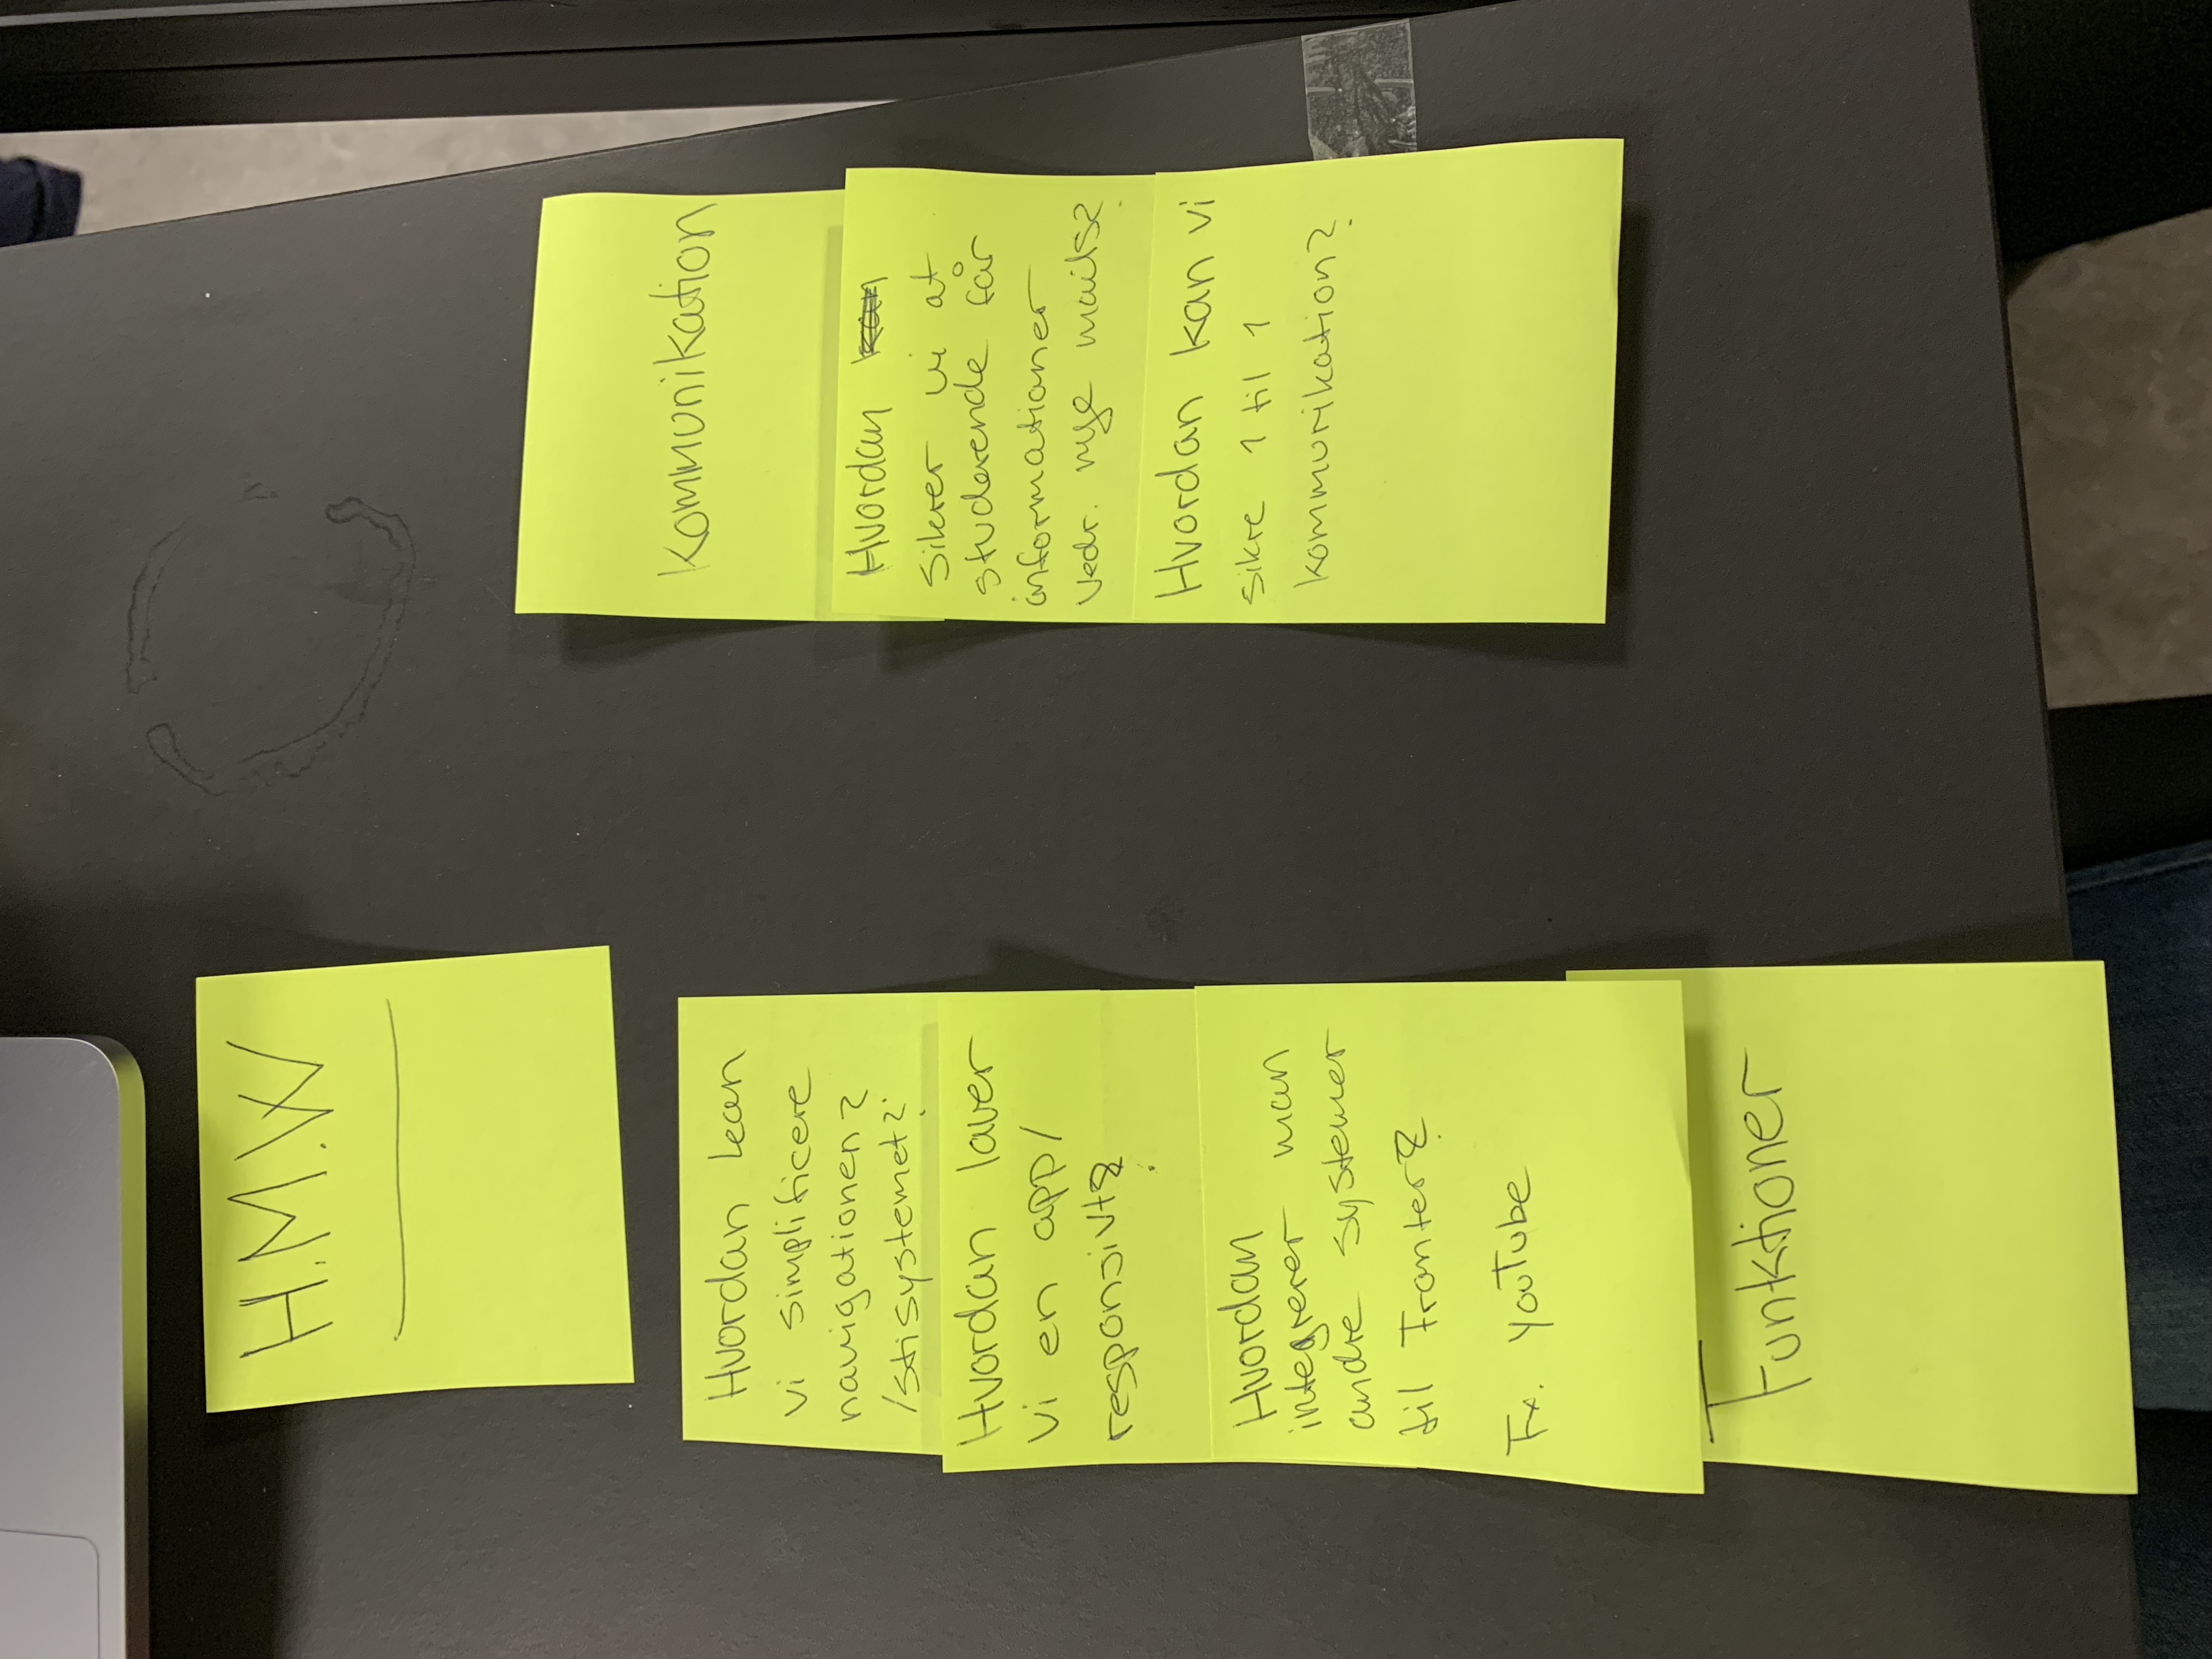 H.M.W
Hvordan kan
vi simplificere
navigationen?
/stisystemet?
Hvordan laver
vi en app/
responsivt?
Hvordan
integrerer man
andre systemer
til Fronter?
Fx. YouTube
Funktioner
Kommunikation
Hvordan
sikrer vi at
studerende får
informationer
vedr. nye mails?
Hvordan kan vi
sikre 1 til 1
kommunikation?